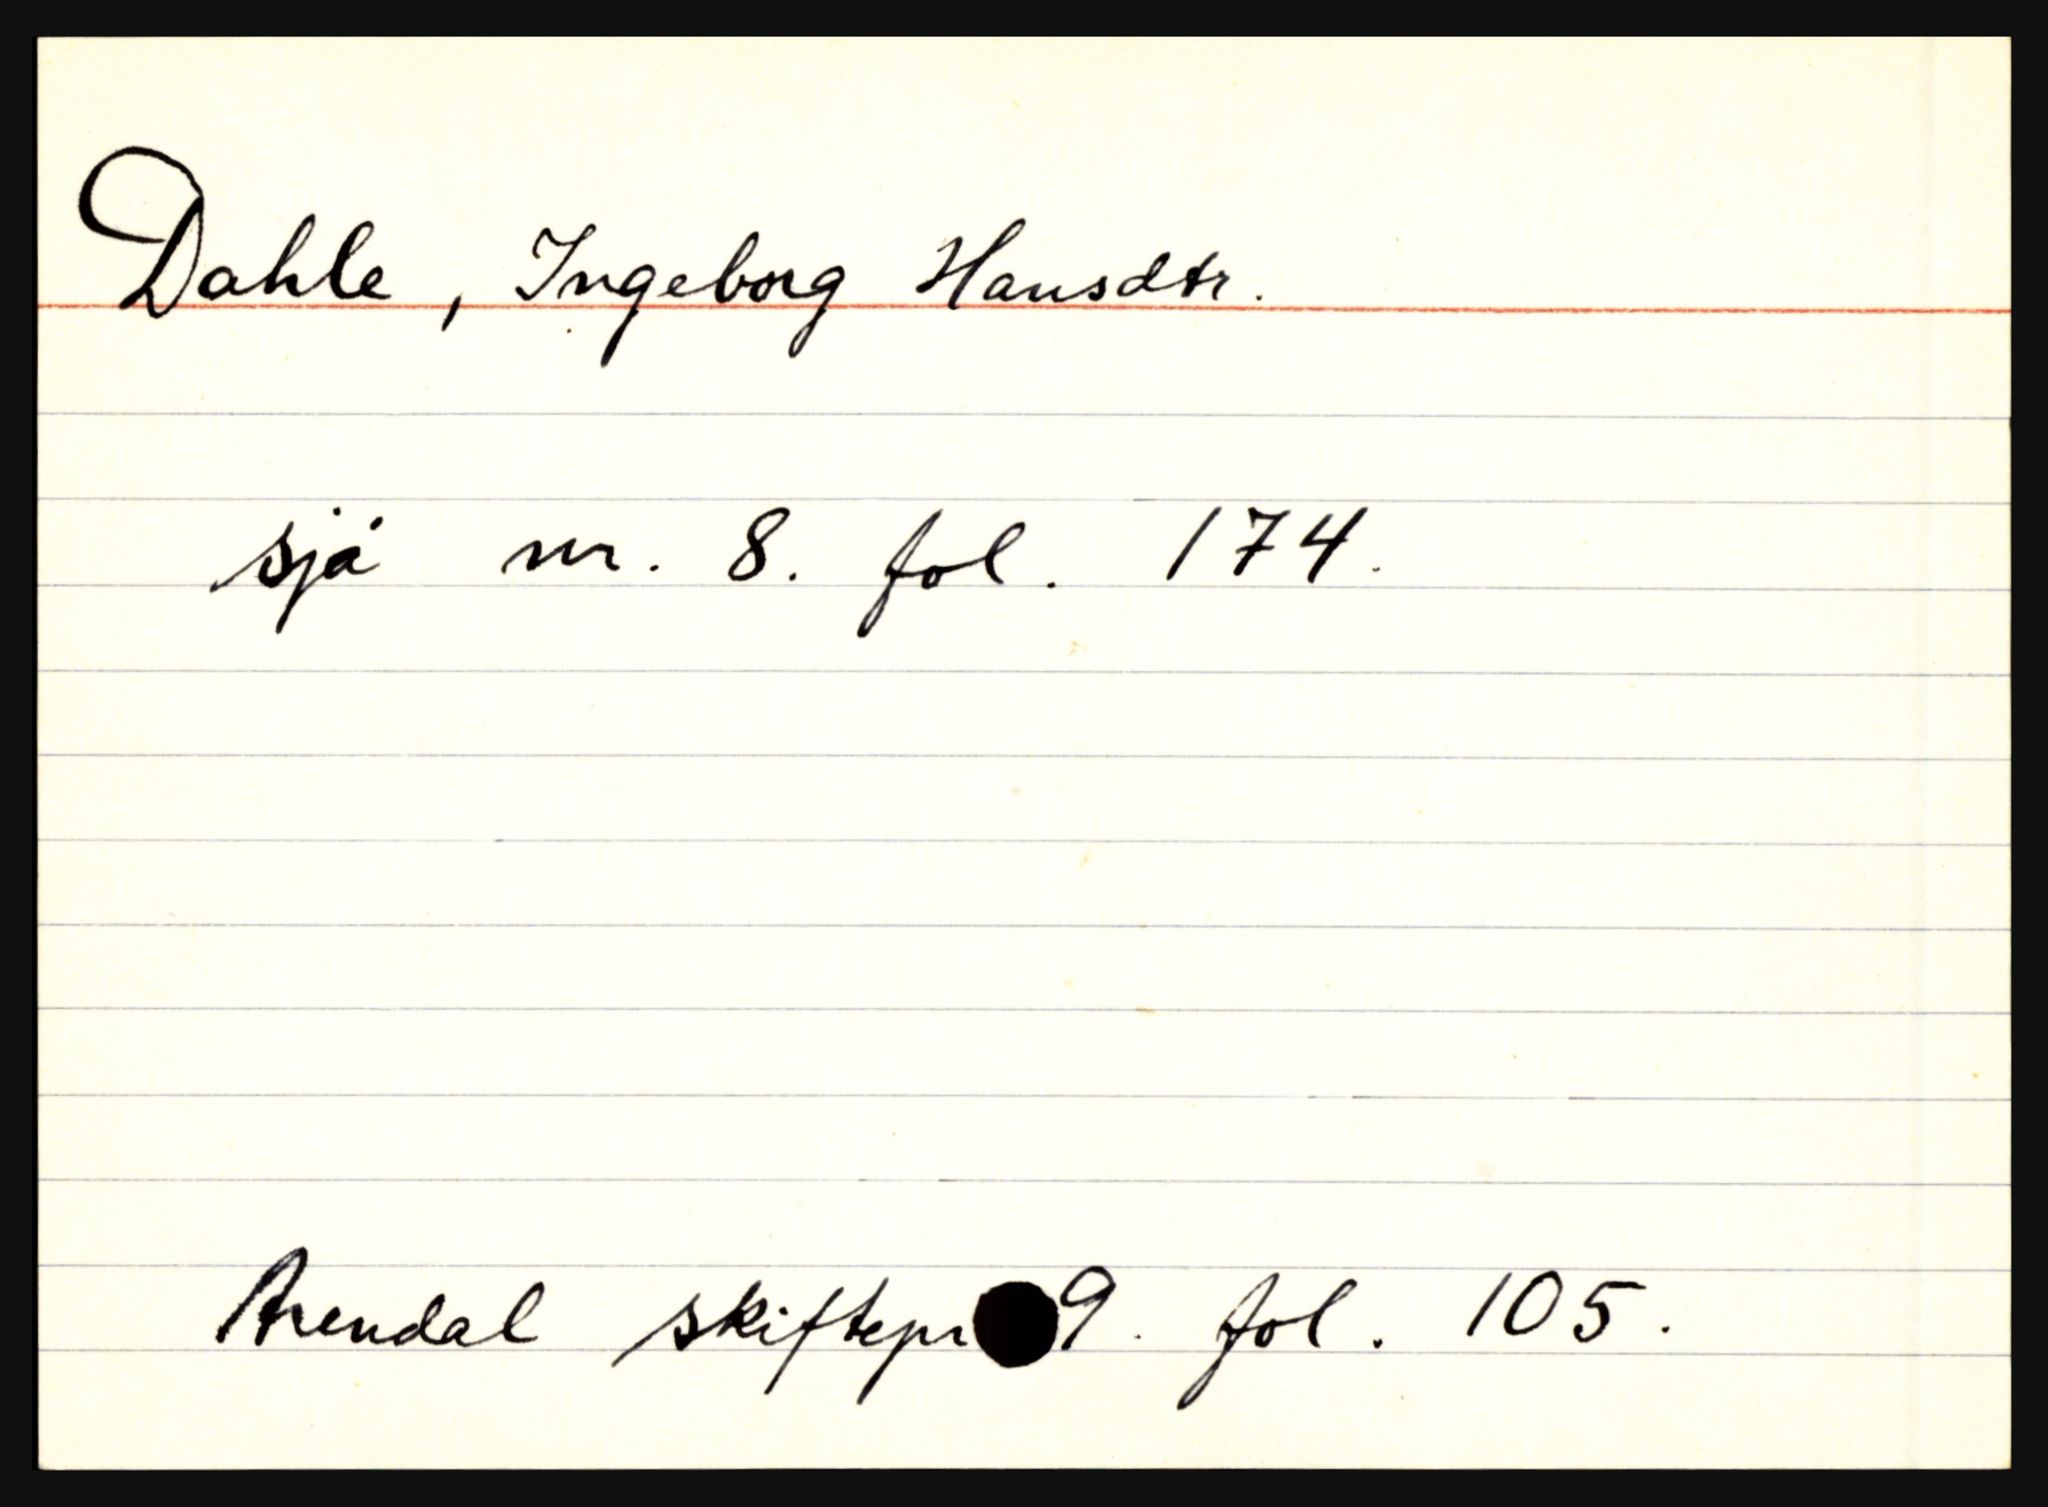 Dahle, Ingeborg Hansdtr.
sjå nr. 8. fol. 174.
Arendal skiftepr 9. fol. 105.